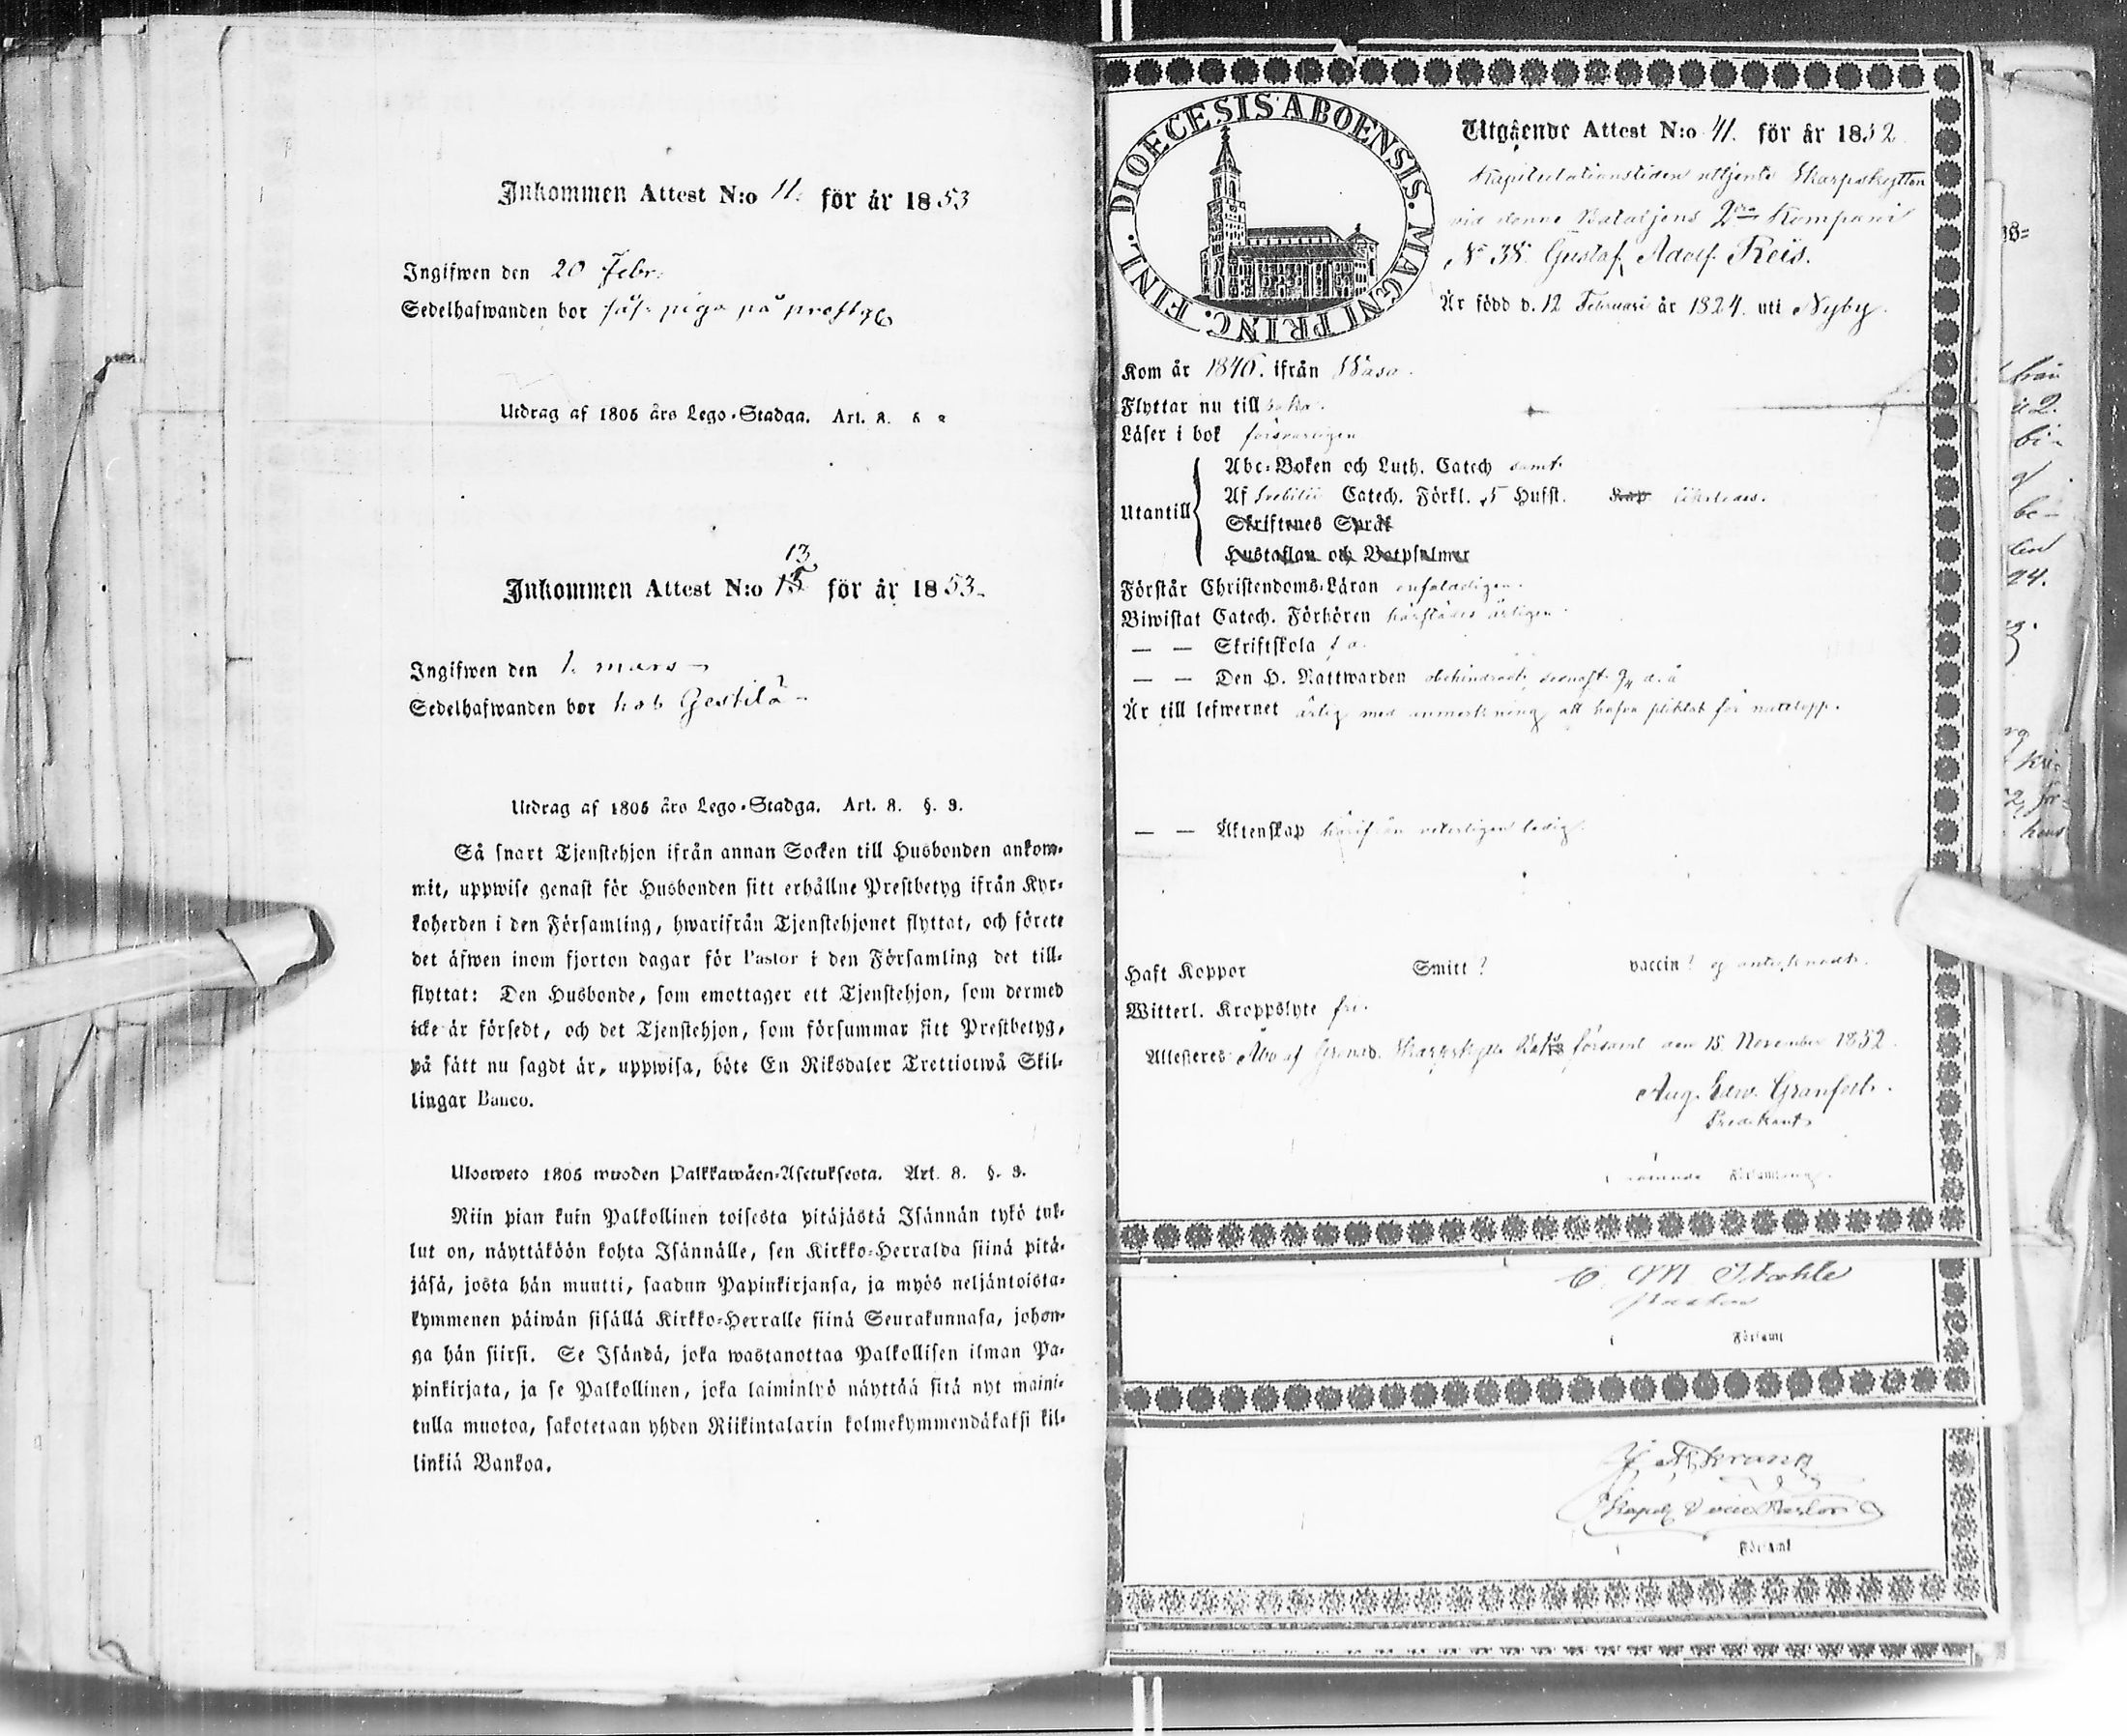 Inkommen Attest N:o 11. för år 1853
Ingifwen den 20 Febr.
Sedelhafwanden bor såſ. piga på prestg
Utdrag af 1805 års Lego-Stadga. Art. 8.
13
Inkommen Attest N:o 15 för år 1853.
Ingifwen den 1. mars
Sedelhafwanden bor hos Gestilä
Utdrag af 1805 års Lego-Stadga. Art. 8. §. 9.
Så snart Tjenstehjon ifrån annan Socken till Husbonden ankom-
mit, uppwise genast för Husbonden sitt erhållne Prestbetyg ifrån Kyr-
koherden i den Församling, hwarifrån Tjenstehjonet flyttat, och förete
det äfwen inom fjorton dagar för Pastor i den Församling det till-
flyttat: Den Husbonde, som emottager ett Tjenstehjon, som dermed
icke är försedt, och det Tjenstehjon, som försummar sitt Prestbetyg,
på sätt nu sagdt är, uppwisa, böte En Riksdaler Trettiotwå Skil-
lingar Banco.
Ulosweto 1805 wuoden Palkkawäen-Asetuksesta. Art. 8. §. 9.
Niin pian kuin Palkollinen toisesta pitäjästä Isännän tykö tul-
lut on, näyttäköön kohta Isännälle, sen Kirkko-Herralda siinä pitä-
jäsä, josta hän muutti, saadun Papinkirjansa, ja myös neljäntoista-
kymmenen päiwän sisällä Kirkko-Herralle siinä Seurakunnasa, johon-
ga hän siirsi. Se Isändä, joka wastanottaa Palkollisen ilman Pa-
pinkirjata, ja se Palkollinen, joka laiminlyö näyttää sitä nyt maini-
tulla muotoa, sakotetaan yhden Riikintalarin kolmekymmendäkaksi kil-
linkiä Bankoa.
DIOECESIS ABOENSIS. MAGNI PRINC. FINL.
Utgående Attest N:o 41. för år 1852
Kapitulationstiden uttjente Skarpskytten
vid denne Bataljens 2dra Kompani
No 38. Gustaf Adolf Reis.
Är född d. 12 Februari år 1824. uti Nyby.
Kom år 1846. ifrån Wasa.
Flyttar nu till
Läser i bok försvarligen
Utantill
Abc-Boken och Luth. Catech samt
Af Svebilii Catech. Förkl. 5 Hufst. Kap
Skriftenes Språk
Hustaflan och Botpsalmer
Förstår Christendoms-Läran enfaldeligen.
Biwistat Catech. Förhören härstädes årligen
— — Skriftskola
— — Den H. Nattwarden obehindradt, senast
Är till lefwernet ärlig med anmerkning att hafva pliktat för
— — Äktenskap härifrån veterligen ledig.
Haft Koppor Smitt? vaccin? ej antecknadt.
Witterl. Kroppslyte fri.
Attesteres Åbo af Grenad. Skarpskytte församl den 15 November 1852.
Aug. Edw. Granfelt.
Predikant
Församling
C. M. Stahle
Pastor
i Församl
Församl